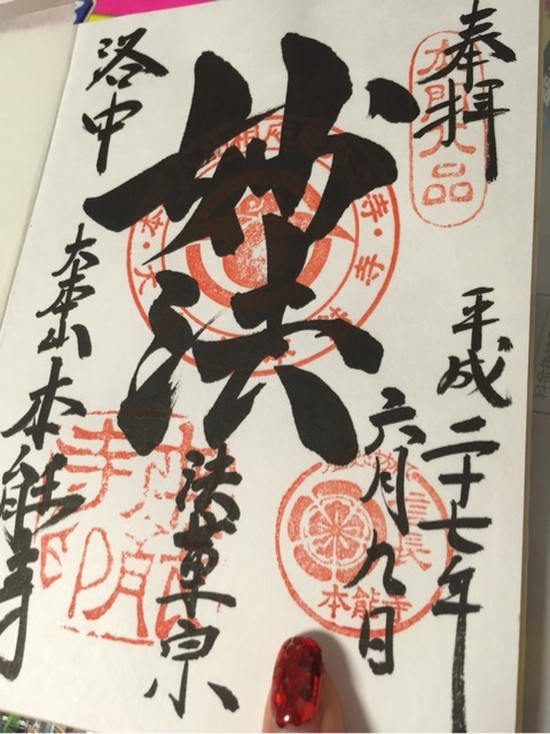 奉拝
平成二十七年
六月九日
妙法
法華宗
洛中
大本山本能寺
信長
本能寺